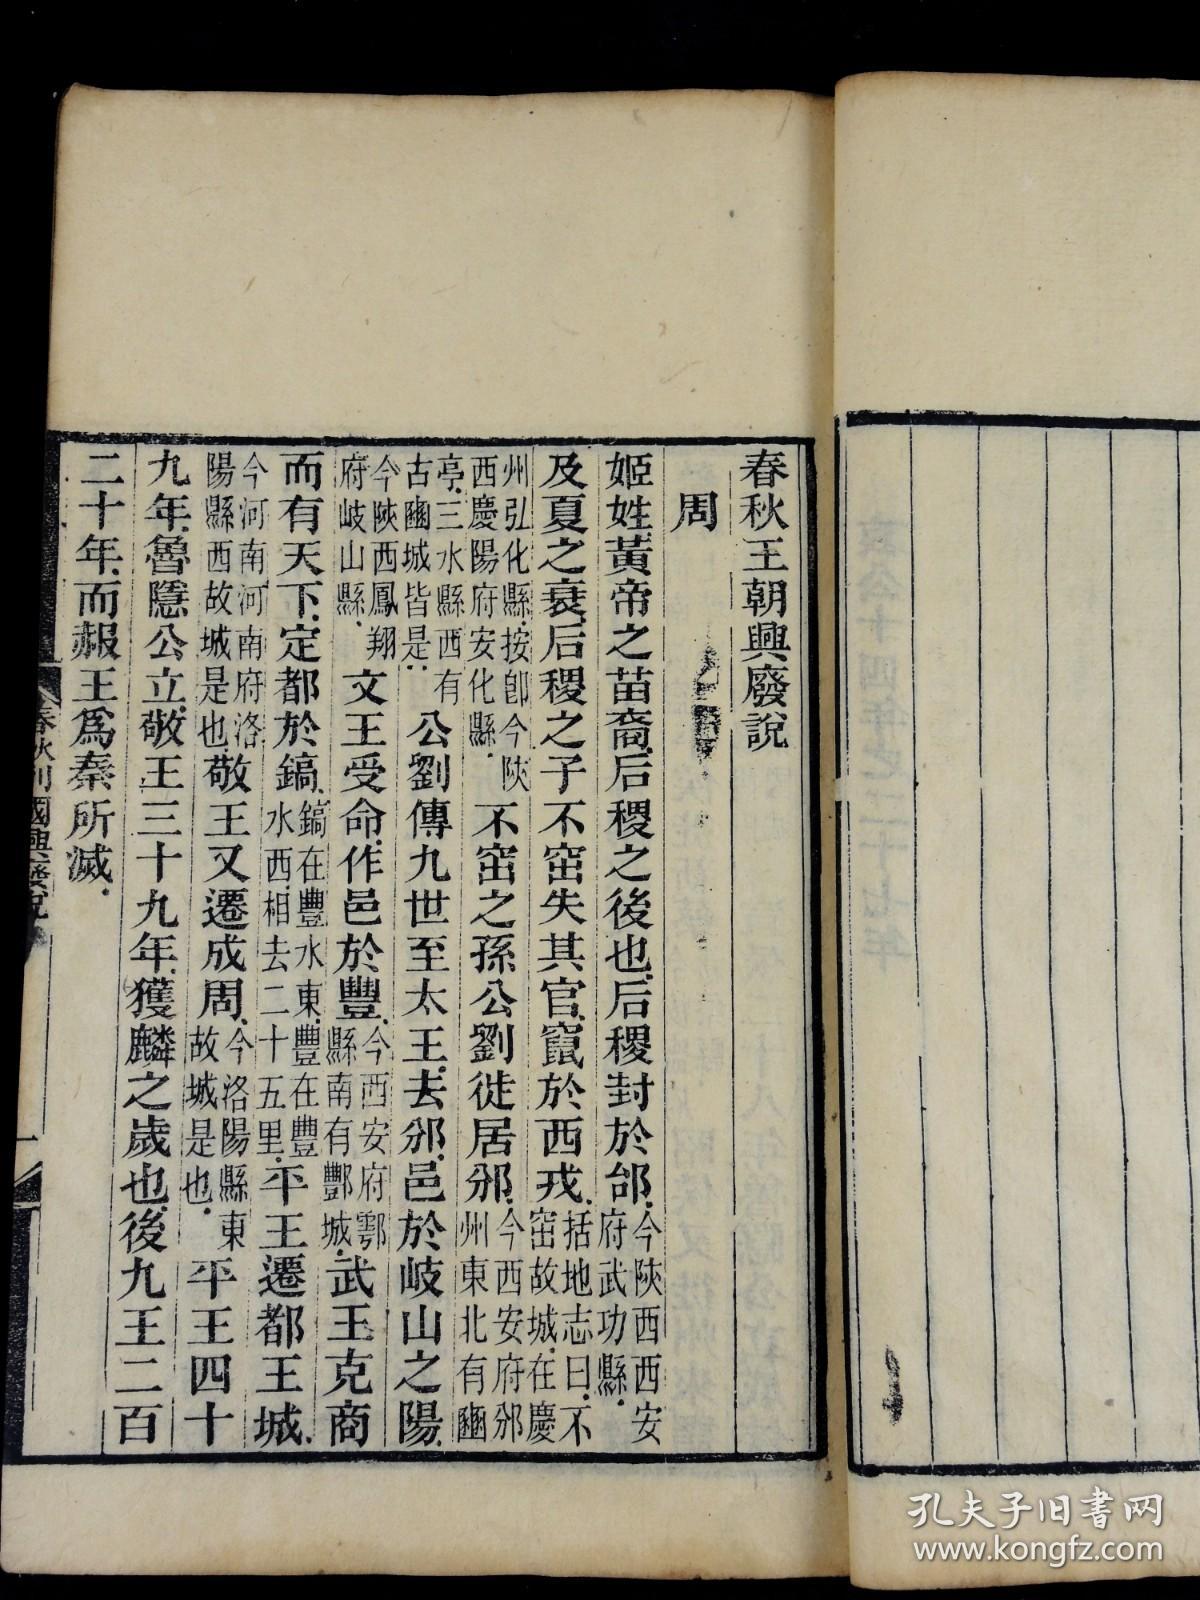 春秋王朝興廢說
周
姬姓黃帝之苗裔后稷之後也后稷封於邰今陝西西安府武功縣
及夏之衰后稷之子不窋失其官竄於西戎括地志曰不窋故城在慶
州弘化縣按卽今陝西慶陽府安化縣不窋之孫公劉徙居邠今西安府邠州東北有豳
亭三水縣西有古豳城皆是公劉傳九世至太王去邠邑於岐山之陽
今陝西鳳翔府岐山縣文王受命作邑於豐今西安府鄠縣南有酆城武王克商
而有天下定都於鎬鎬在豐水東豐在豐水西相去二十五里平王遷都王城
今河南河南府洛陽縣西故城是也敬王又遷成周今洛陽縣東故城是也平王四十
九年魯隱公立敬王三十九年獲麟之歲也後九王二百
二十年而赧王爲秦所滅
春秋列國興廢說
一
孔夫子旧书网
www.kongfz.com